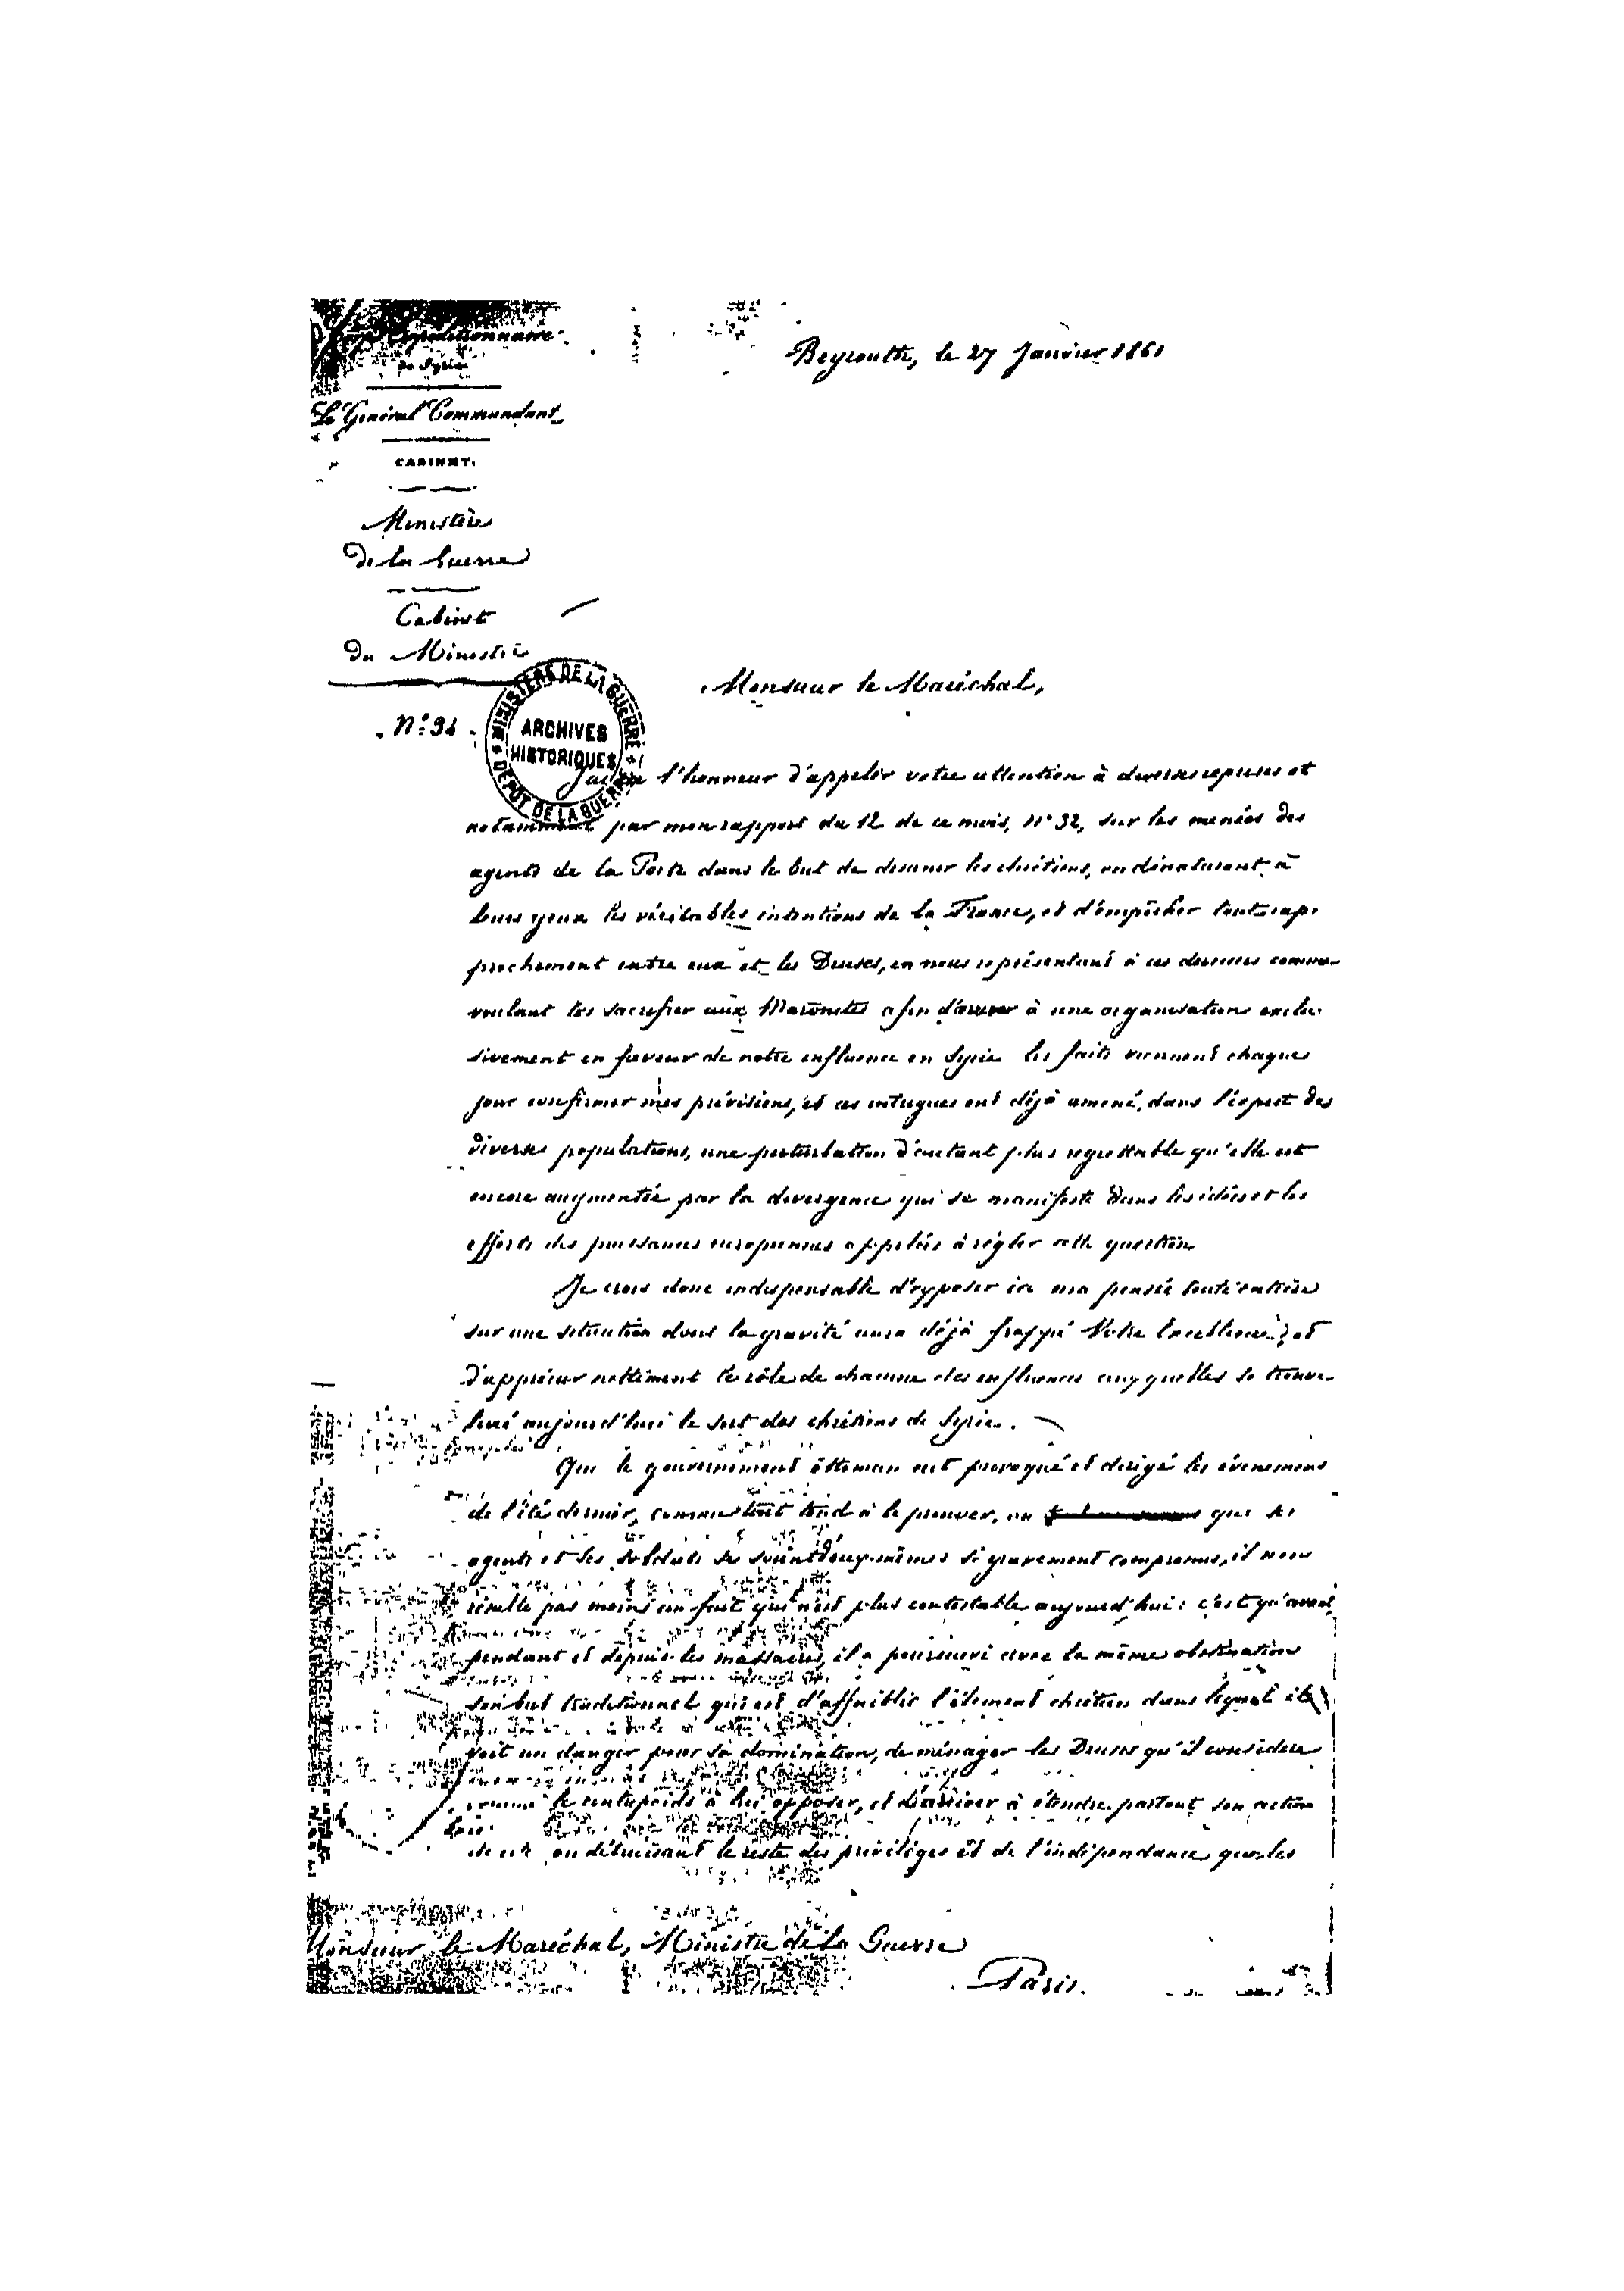 Expéditionnaire
de Syrie
Le Général Commandant
CABINET.
Ministère
de la Guerre
Cabinet
du Ministre
Beyrouth, le 27 Janvier 1861
MINISTÈRE DE LA GUERRE
ARCHIVES
HISTORIQUES
DÉPOT DE LA GUERRE
Monsieur le Maréchal,
J'ai eu l'honneur d'appeler votre attention à diverses reprises et
notamment par mon rapport du 12 de ce mois, N° 32, sur les menées des
agents de la Porte dans le but de désunir les chrétiens, en dénaturant à
leurs yeux les véritables intentions de la France, et d'empêcher tout rap-
prochement entre eux et les Druses, en nous représentant à ces derniers comme
voulant les sacrifier aux Maronites afin d'arriver à une organisation exclu-
sivement en faveur de notre influence en Syrie les faits viennent chaque
jour confirmer mes prévisions, et ces intrigues ont déjà amené, dans l'esprit des
diverses populations, une perturbation d'autant plus regrettable qu'elle est
encore augmentée par la divergence qui se manifeste dans les idées et les
efforts des puissances européennes appelées à régler cette question
Je crois donc indispensable d'exposer ici ma pensée toute entière
sur une situation dont la gravité aura déjà frappé Votre Excellence, et
d'apprécier nettement le rôle de chacune des influences auxquelles se trouve
livré aujourd'hui le sort des chrétiens de Syrie.
Que le gouvernement ottoman ait provoqué et dirigé les évènemens
de l'été dernier, comme tout tend à le prouver, ou que ses
agents et ses soldats se soient d'eux-mêmes si gravement compromis, il n'en
résulte pas moins un fait qui n'est plus contestable aujourd'hui : c'est qu'avant,
pendant et depuis les massacres, il a poursuivi avec la même obstination
son but traditionnel qui est d'affaiblir l'élément chrétien dans lequel il
voit un danger pour sa domination, de ménager les Druses qu'il considère
comme le contrepoids à lui opposer, et d'arriver à étendre partout son action
en détruisant le reste des privilèges et de l'indépendance que les
Monsieur le Maréchal, Ministre de la Guerre
Paris.